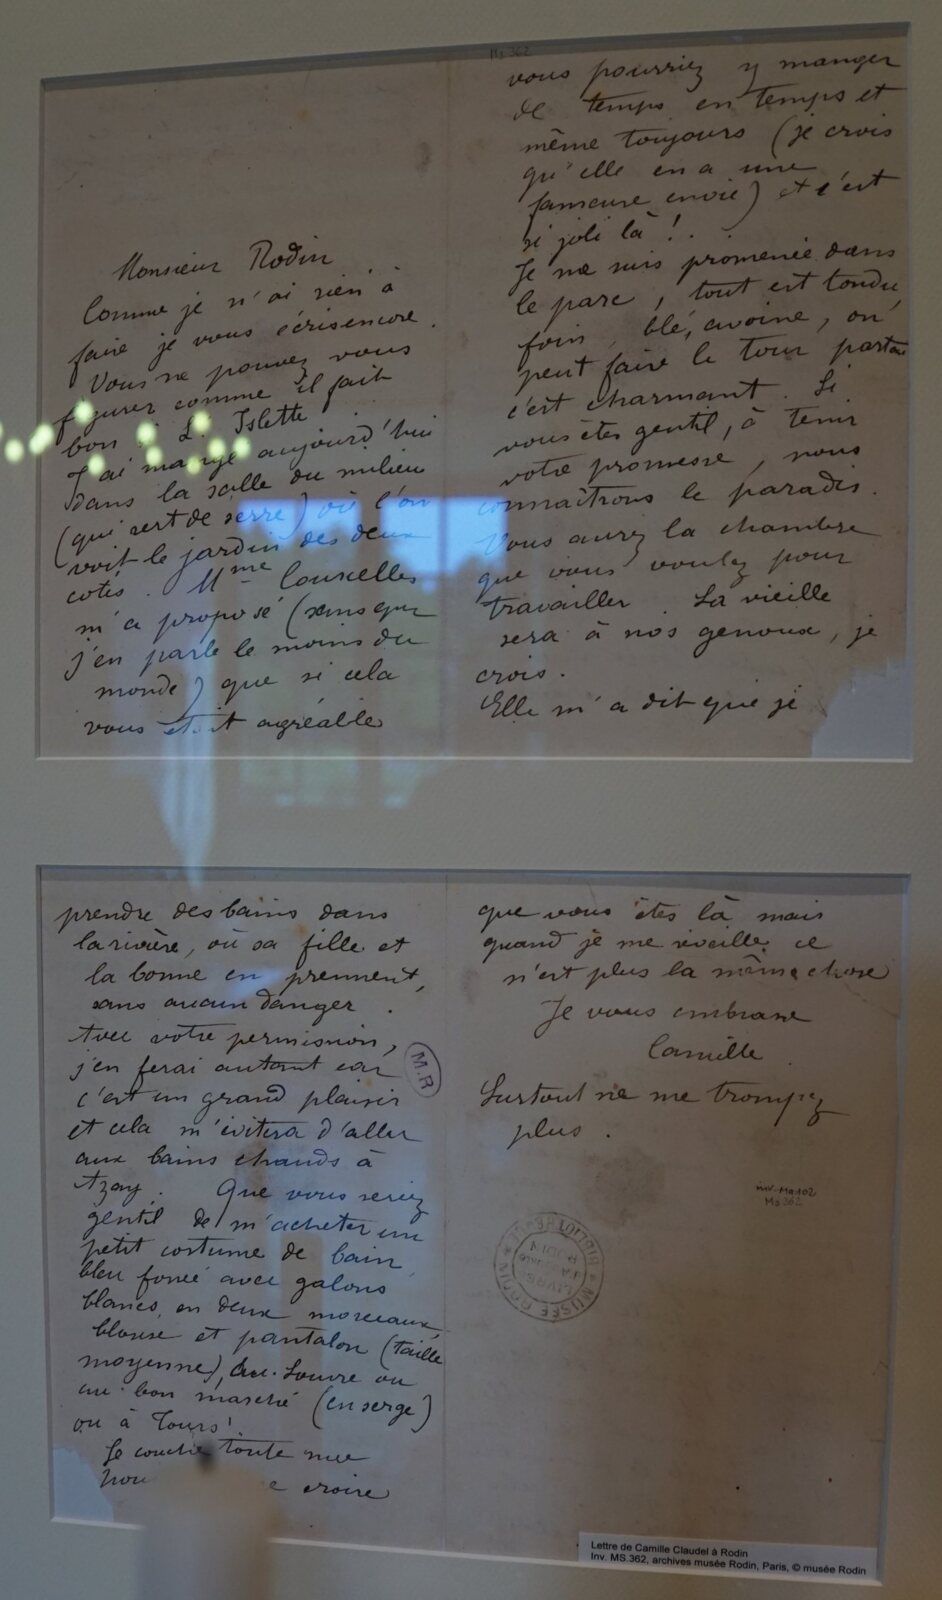 Ms 362
Monsieur Rodin
Comme je n'ai rien à
faire je vous écris encore.
Vous ne pouvez vous
figurer comme il fait
bon à L'Islette
J'ai mangé aujourd'hui
dans la salle du milieu
(qui sert de serre) où l'on
voit le jardin des deux
cotés. Mme Courcelles
m'a proposé (sans que
j'en parle le moins du
monde) que si cela
vous était agréable
vous pourriez y manger
de temps en temps et
même toujours (je crois
qu'elle en a une
fameuse envie) et c'est
si joli là !.
Je me suis promenée dans
le parc, tout est tondu,
foin, blé, avoine, on
peut faire le tour partout
c'est charmant. Si
vous êtes gentil, à tenir
votre promesse, nous
connaîtrons le paradis.
Vous aurez la chambre
que vous voulez pour
travailler. La vieille
sera à nos genoux, je
crois.
Elle m'a dit que je
prendre des bains dans
la rivière, où sa fille et
la bonne en prennent,
sans aucun danger.
Avec votre permission,
j'en ferai autant car
c'est un grand plaisir
et cela m'évitera d'aller
aux bains chauds à
Azay. Que vous seriez
gentil de m'acheter un
petit costume de bain,
bleu foncé avec galons
blancs, en deux morceaux,
blouse et pantalon (taille
moyenne), au Louvre ou
au bon marché (en serge)
ou à Tours!
Je couche toute nue
croire
M.R
que vous êtes là mais
quand je me réveille ce
n'est plus la même chose
Je vous embrasse
Camille
Surtout ne me trompez
plus.
inv. Ma 102
Ms 362
MUSÉE RODIN * BIBLIOTHÈQUE *
LIVRE
RODIN
Lettre de Camille Claudel à Rodin
Inv. MS.362, archives musée Rodin, Paris, © musée Rodin